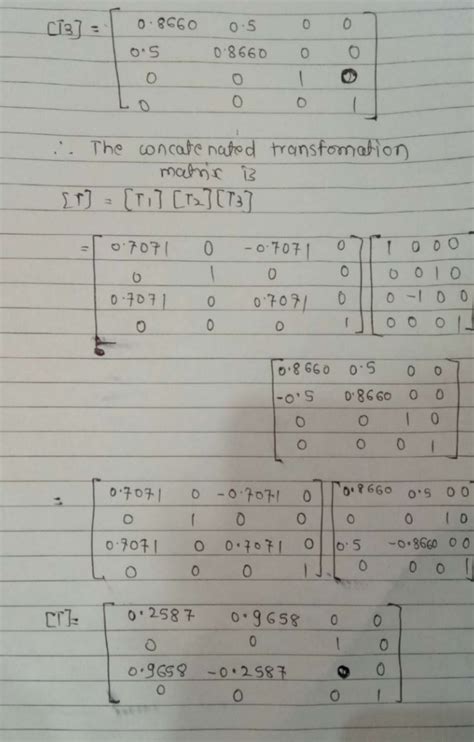 [T3] = 0.8660 0.5 0 0
0.5 0.8660 0 0
0 0 1 0
0 0 0 1
∴ The concatenated transfomation
matrix is
[T] = [T1] [T2] [T3]
= 0.7071 0 -0.7071 0 1 0 0 0
0 1 0 0 0 0 1 0
0.7071 0 0.7071 0 0 -1 0 0
0 0 0 1 0 0 0 1
0.8660 0.5 0 0
-0.5 0.8660 0 0
0 0 1 0
0 0 0 1
= 0.7071 0 -0.7071 0 0.8660 0.5 0 0
0 1 0 0 0 0 1 0
0.7071 0 0.7071 0 0.5 -0.8660 0 0
0 0 0 1 0 0 0 1
[T]= 0.2587 0.9658 0 0
0 0 1 0
0.9658 -0.2587 0 0
0 0 0 1